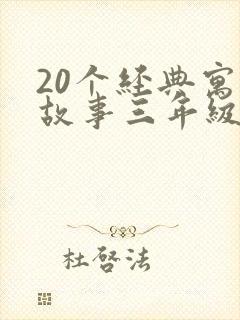 20个经典寓
故事三年级
杜启法